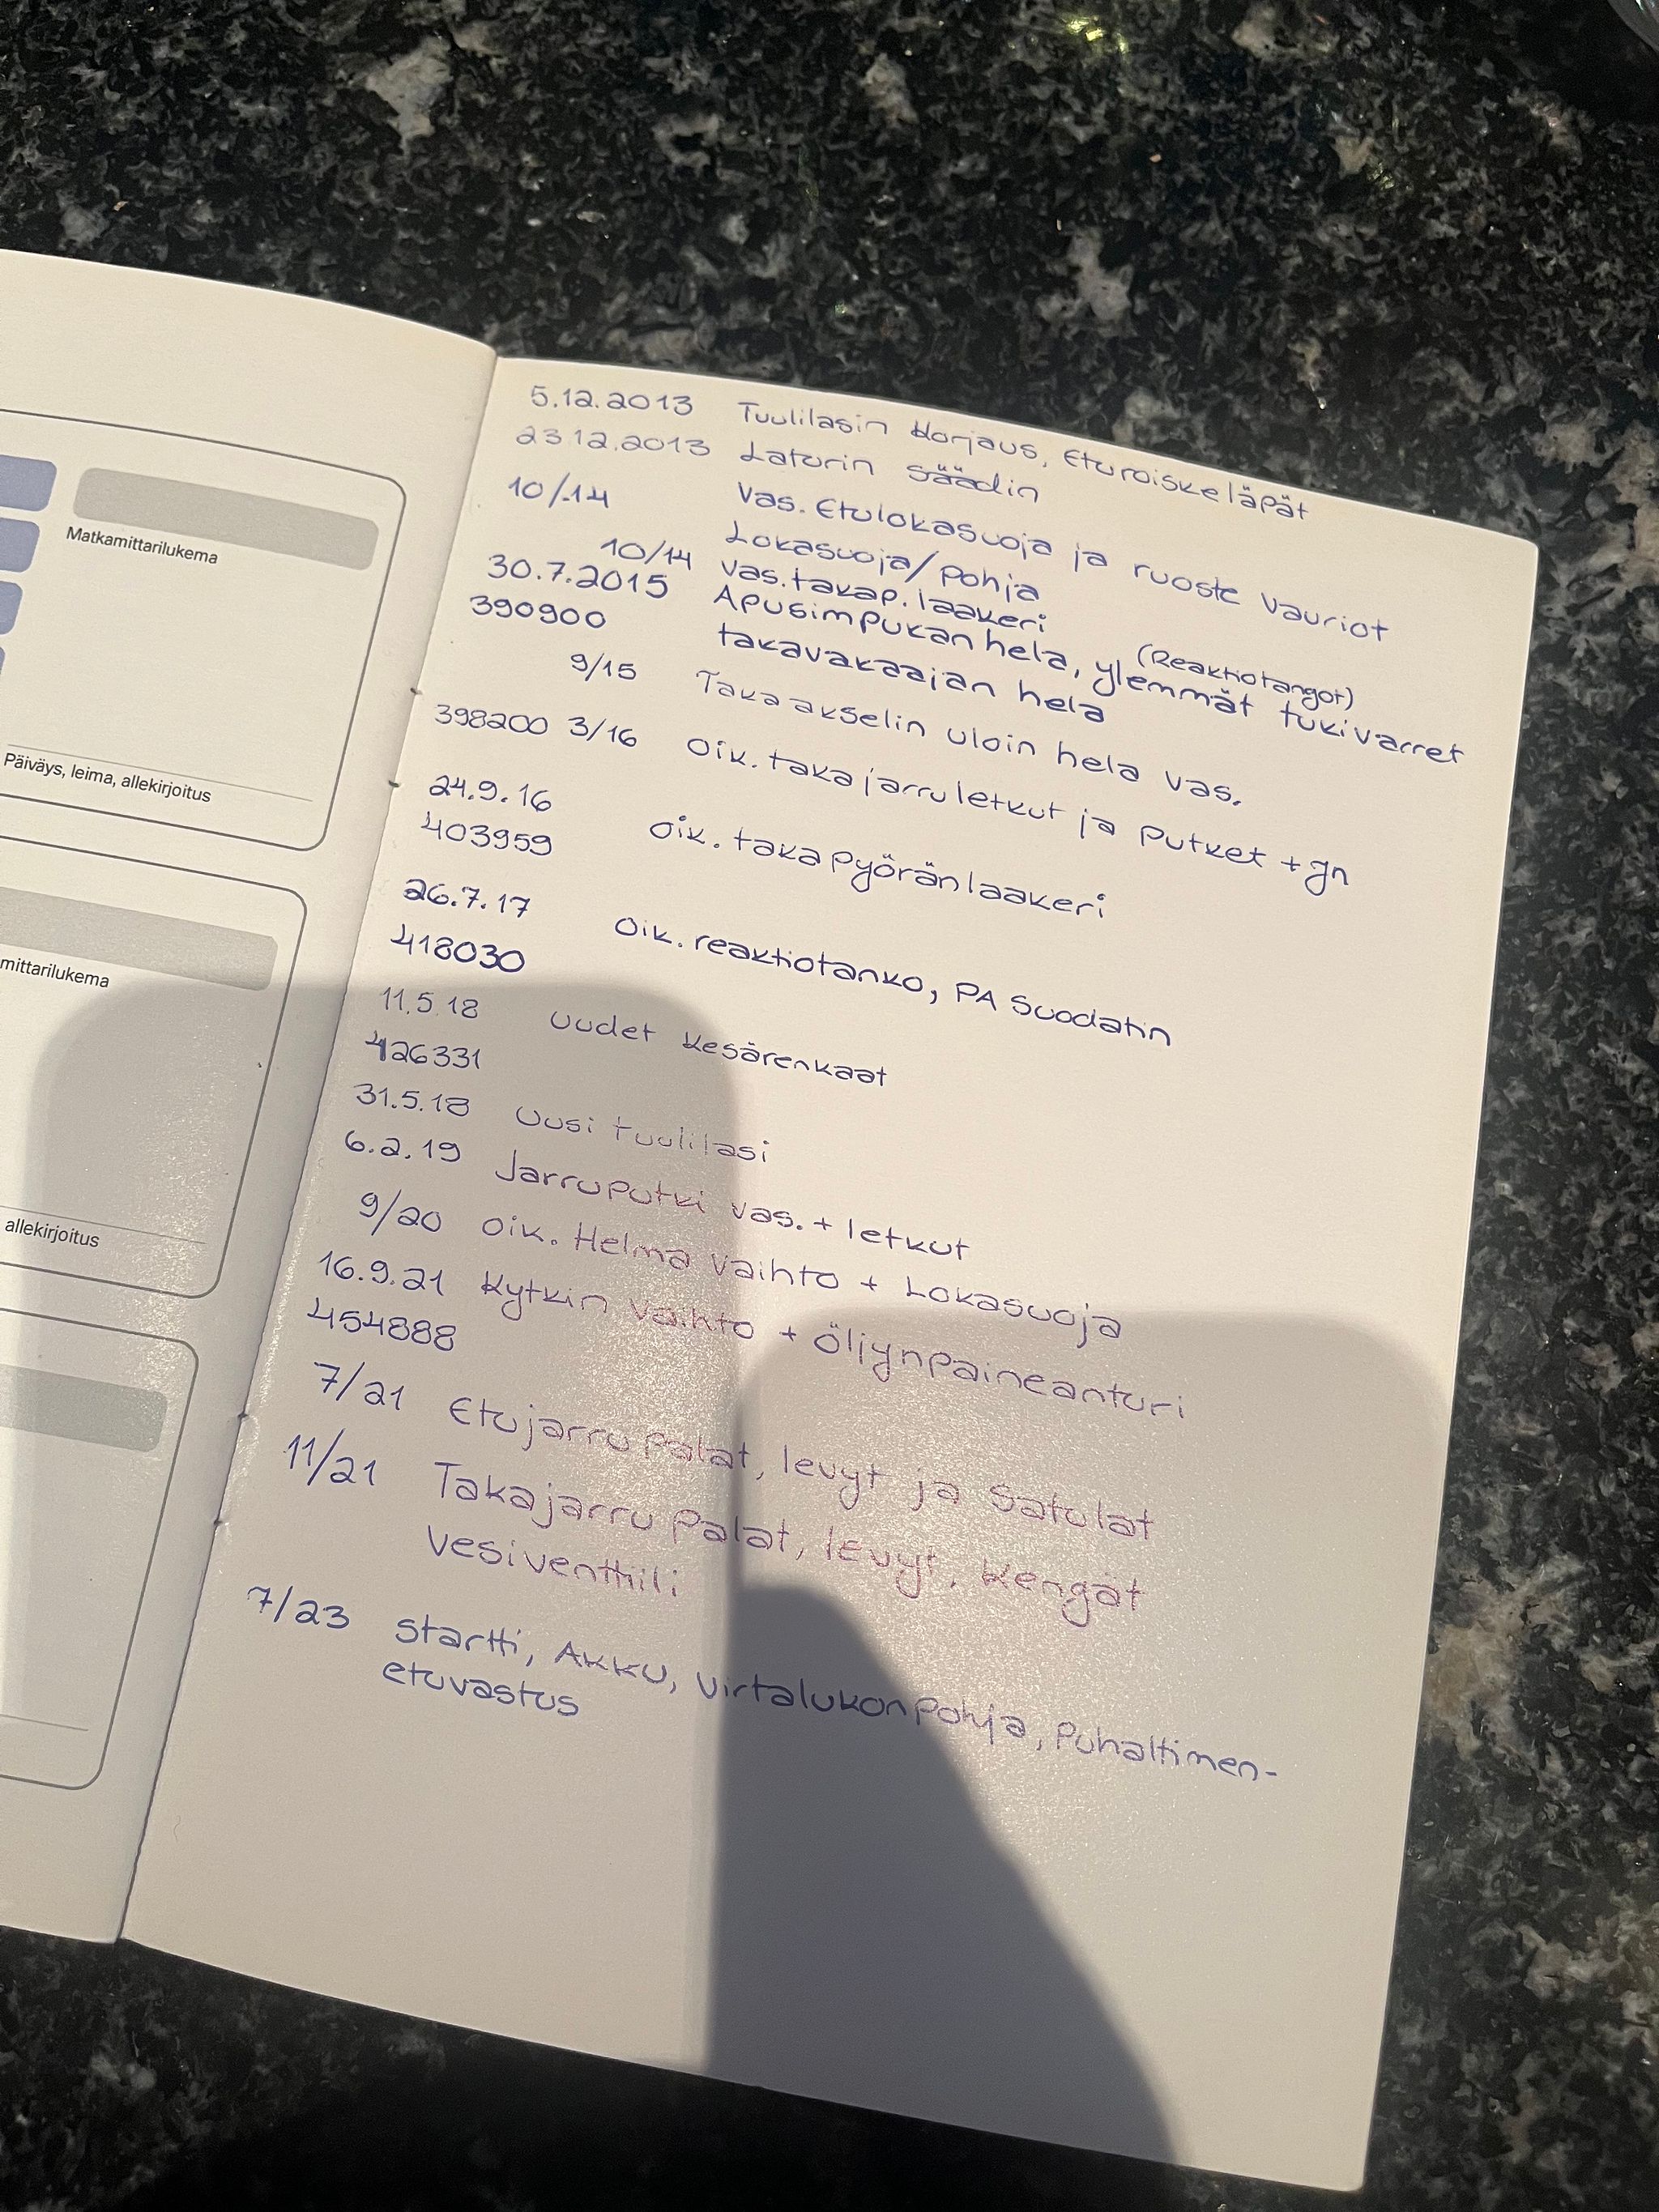 Matkamittarilukema
Päiväys, leima, allekirjoitus
mittarilukema
allekirjoitus
5.12.2013 Tuulilasin korjaus, Eturoiskeläpät
23.12.2013 Laturin säädin
10/-14 Vas. Etulokasuoja ja ruoste vauriot
Lokasuoja/pohja
10/14 vas. takap. laakeri
30.7.2015 Apusimpukan hela, ylemmät tukivarret
(Reaktiotangot)
390900 takavakaajan hela
9/15 Taka akselin uloin hela vas.
398200 3/16 Oik. taka jarruletkut ja Putket + Jn
24.9.16
403959 Oik. taka Pyöränlaakeri
26.7.17
418030 Oik. reaktiotanko, PA Suodatin
11.5.18 Uudet kesärenkaat
426331
31.5.18 Uusi tuulilasi
6.2.19 Jarruputki vas. + letkut
9/20 Oik. Helma vaihto + Lokasuoja
16.9.21 Kytkin vaihto + öljynpaineanturi
454888
7/21 Etujarru Palat, levyt ja Satulat
11/21 Takajarru Palat, levyt, kengät
Vesiventtiili
7/23 Startti, Akku, Virtalukonpohja, Puhaltimen-
etuvastus